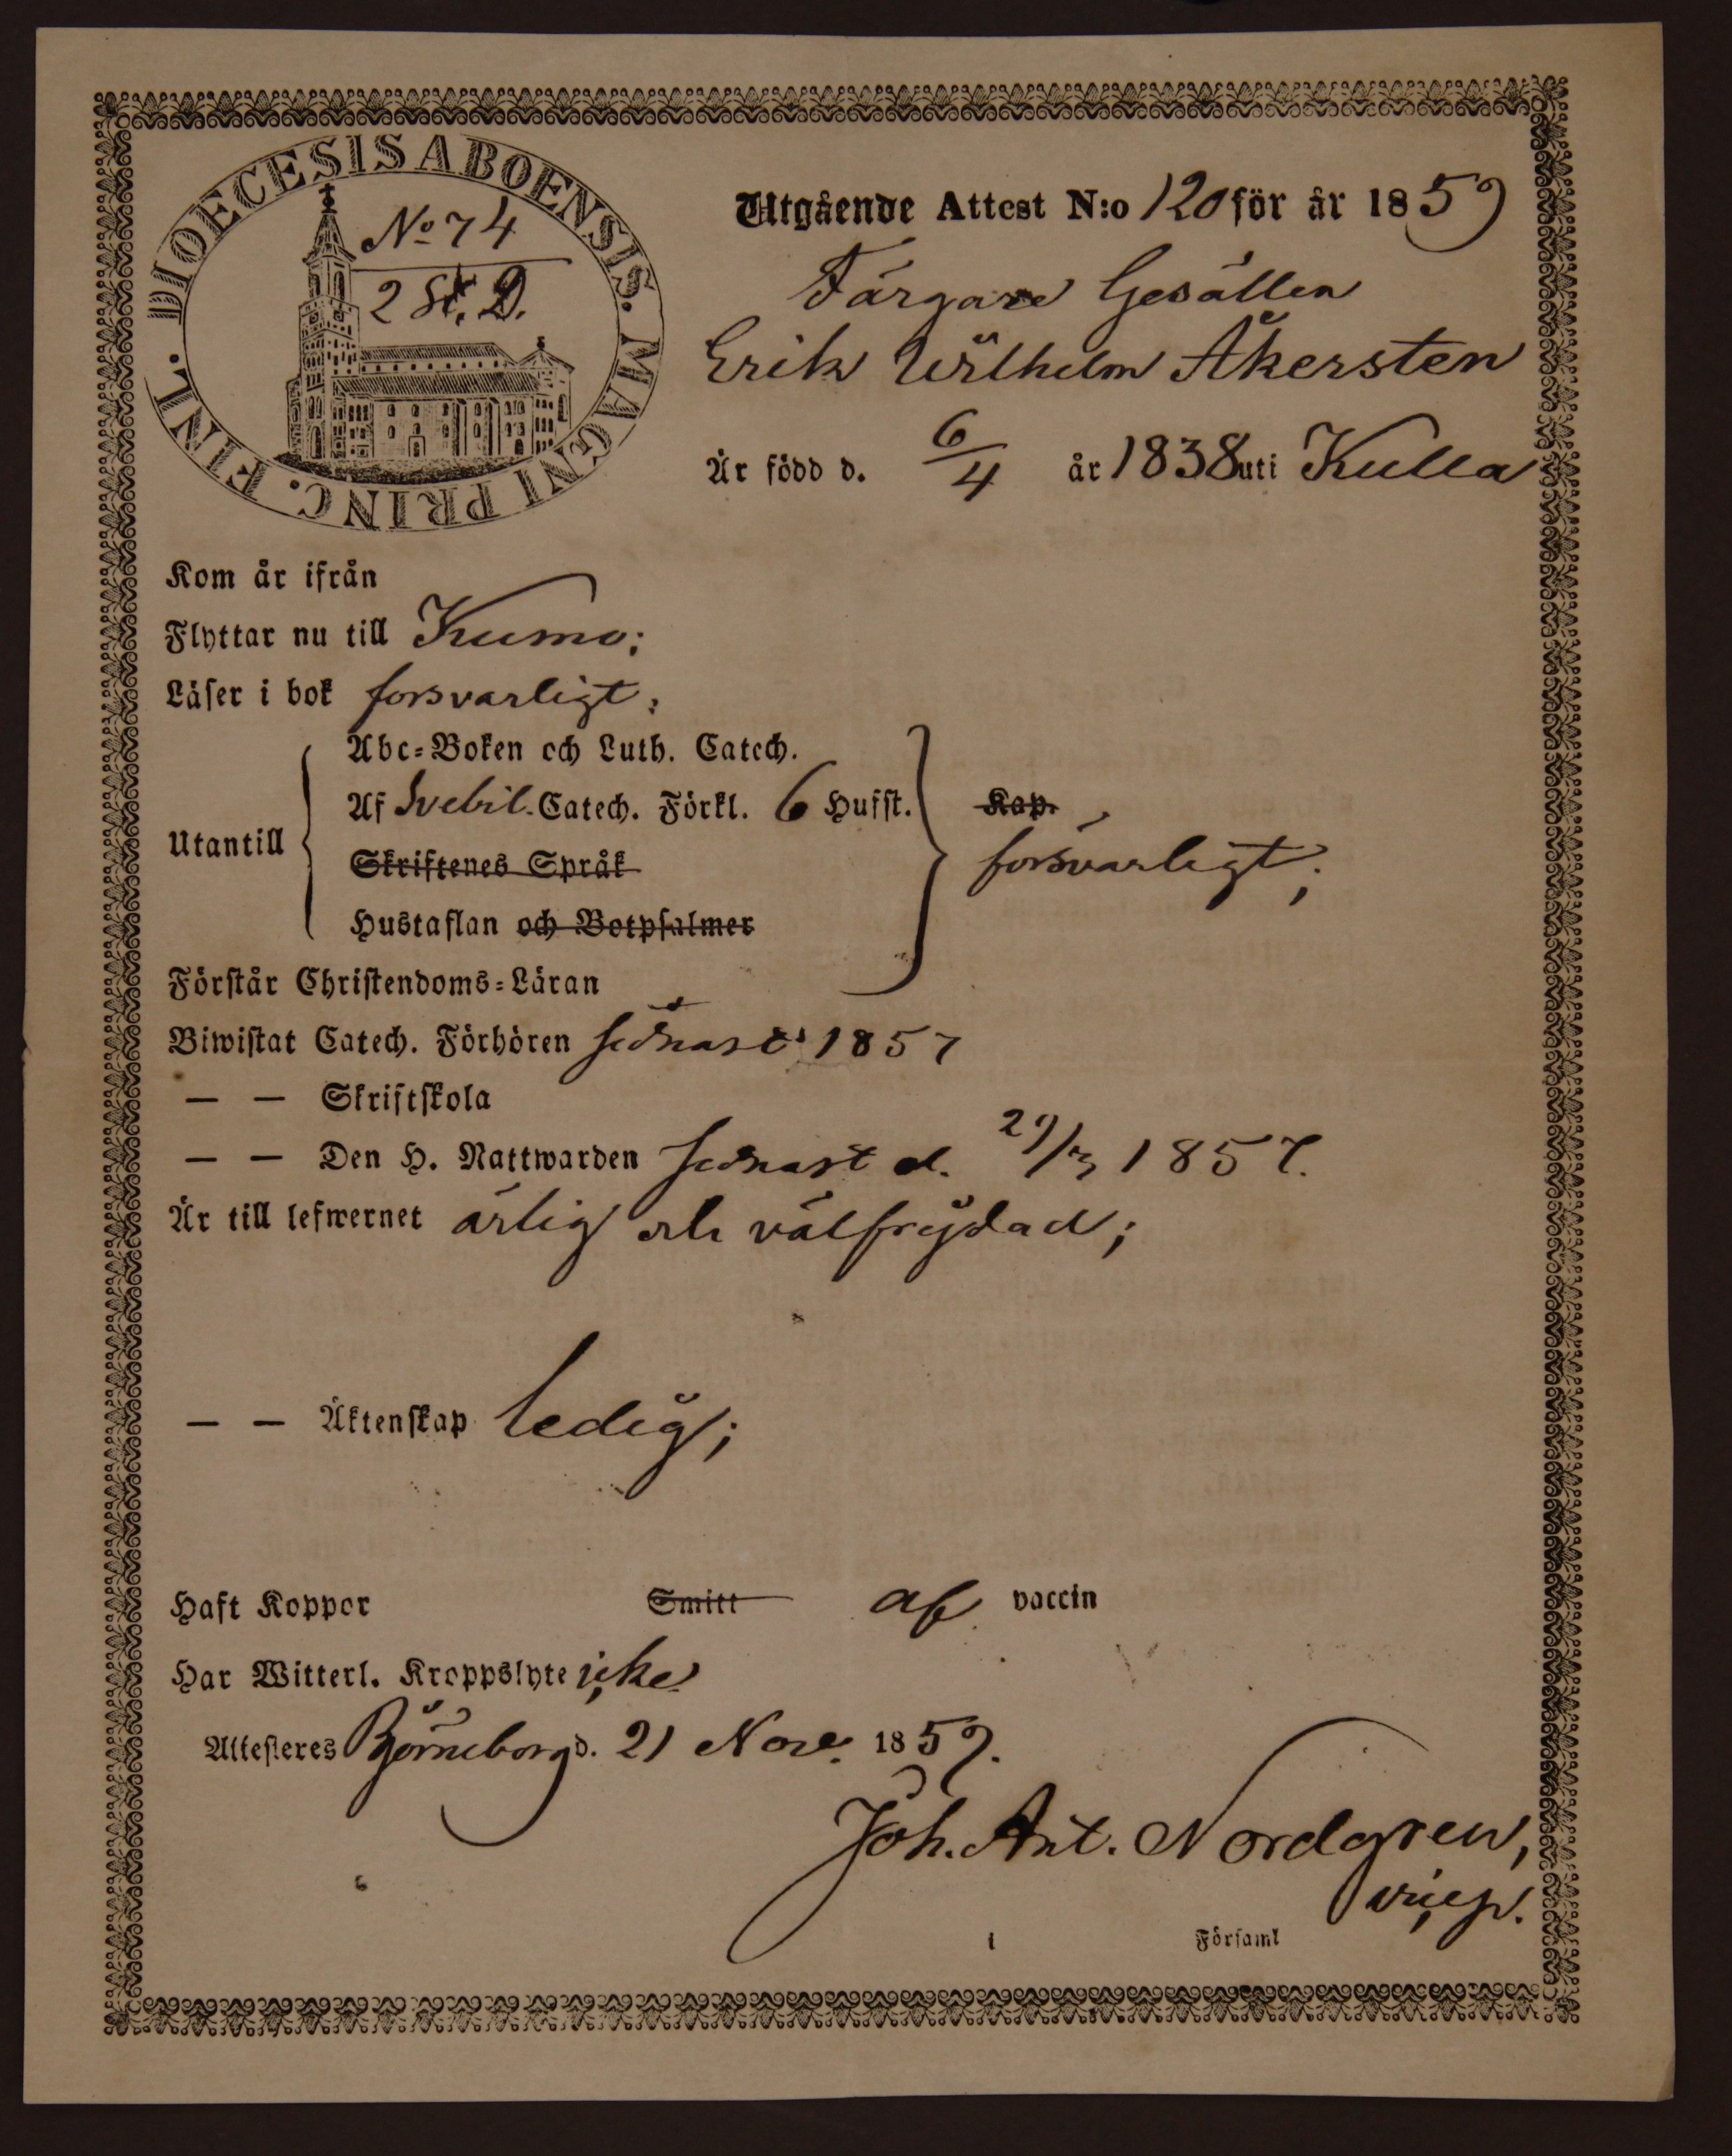 DIOECESIS ABOENSIS. MAGNI PRINC. FINL.
No 74
2 St. D.
Utgående Attest N:o 120 för år 1859
Färgare Gesällen
Erik Wilhelm Åkersten
Är född d. 6/4 år 1838 uti Kulla
Kom år ifrån
Flyttar nu till Kumo;
Läser i bok forsvarligt;
Abc-Boken och Luth. Catech.
Af Svebil. Catech. Förkl. 6 Hufst. Kap.
Utantill
Skriftenes Språk
försvarligt;
Hustaflan och Botpsalmer
Förstår Christendoms-Läran
Biwistat Catech. Förhören sednast 1857
— — Skriftskola
— — Den H. Nattwarden sednast d. 29/3 1857.
Är till lefwernet ärlig och välfrejdad;
— — Äktenskap ledig;
Haft Koppor Smitt af vaccin
Har Witterl. Kroppslyte icke
Attesteres Björneborg d. 21 Nov. 1859.
Joh. Ant. Nordgren,
i Församl